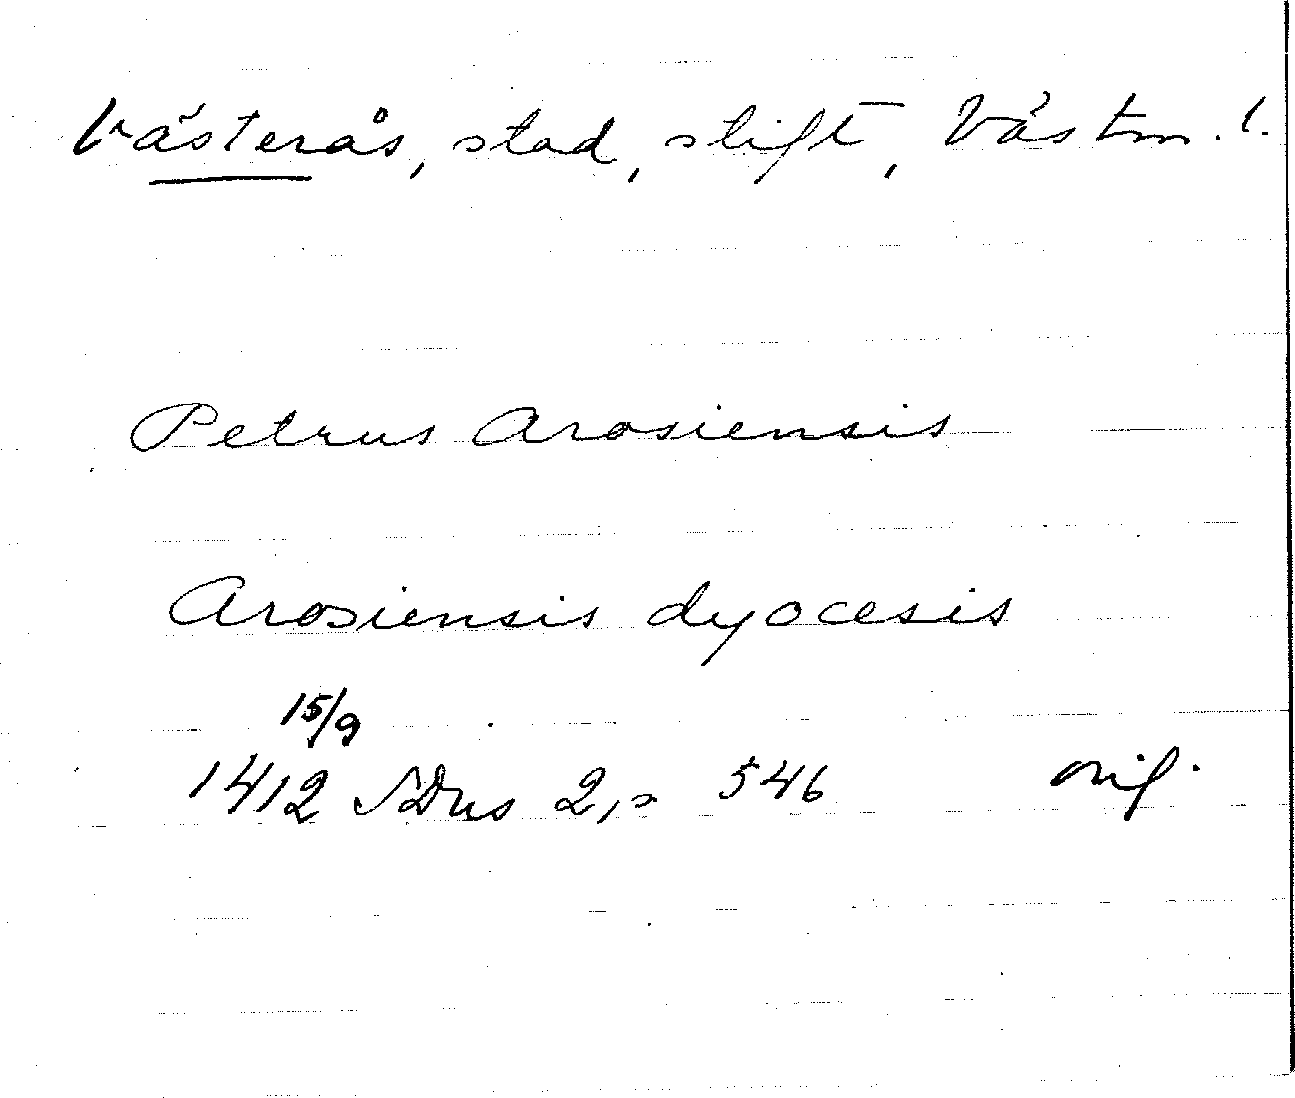 Västerås, stad, stift, Västm. l.
Petrus Arosiensis
Arosiensis dyocesis
15/9
1412 SDns 2, s 546 orig.